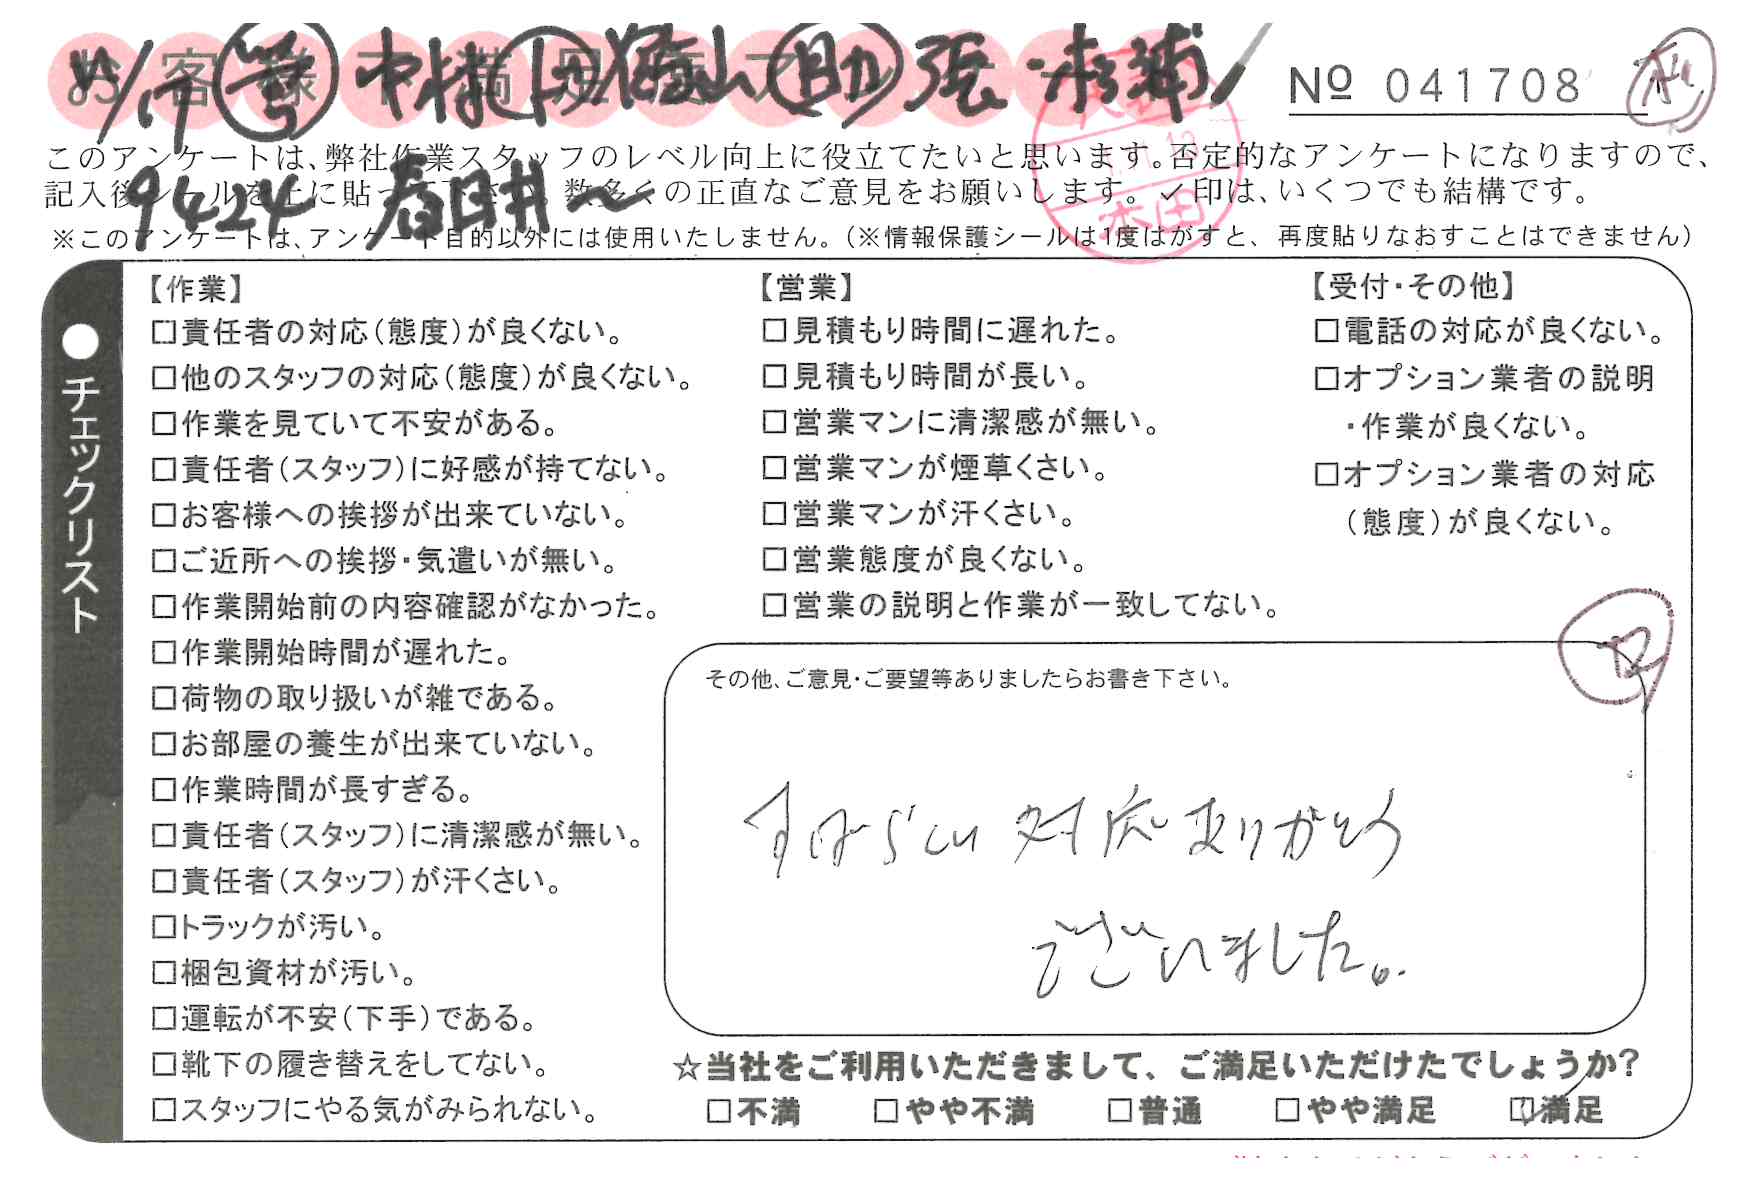 お客様不満足度アンケート
№ 041708
このアンケートは、弊社作業スタッフのレベル向上に役立てたいと思います。否定的なアンケートになりますので、
記入後シールを上に貼って下さい。数多くの正直なご意見をお願いします。✓印は、いくつでも結構です。
9424 春日井〜
※このアンケートは、アンケート目的以外には使用いたしません。(※情報保護シールは1度はがすと、再度貼りなおすことはできません)
本田
●チェックリスト
【作業】
□責任者の対応(態度)が良くない。
□他のスタッフの対応(態度)が良くない。
□作業を見ていて不安がある。
□責任者(スタッフ)に好感が持てない。
□お客様への挨拶が出来ていない。
□ご近所への挨拶・気遣いが無い。
□作業開始前の内容確認がなかった。
□作業開始時間が遅れた。
□荷物の取り扱いが雑である。
□お部屋の養生が出来ていない。
□作業時間が長すぎる。
□責任者(スタッフ)に清潔感が無い。
□責任者(スタッフ)が汗くさい。
□トラックが汚い。
□梱包資材が汚い。
□運転が不安(下手)である。
□靴下の履き替えをしてない。
□スタッフにやる気がみられない。
【営業】
□見積もり時間に遅れた。
□見積もり時間が長い。
□営業マンに清潔感が無い。
□営業マンが煙草くさい。
□営業マンが汗くさい。
□営業態度が良くない。
□営業の説明と作業が一致してない。
【受付・その他】
□電話の対応が良くない。
□オプション業者の説明
・作業が良くない。
□オプション業者の対応
(態度)が良くない。
その他、ご意見・ご要望等ありましたらお書き下さい。
すばらしい対応ありがとう
ございました。
☆当社をご利用いただきまして、ご満足いただけたでしょうか?
□不満 □やや不満 □普通 □やや満足 ☑満足